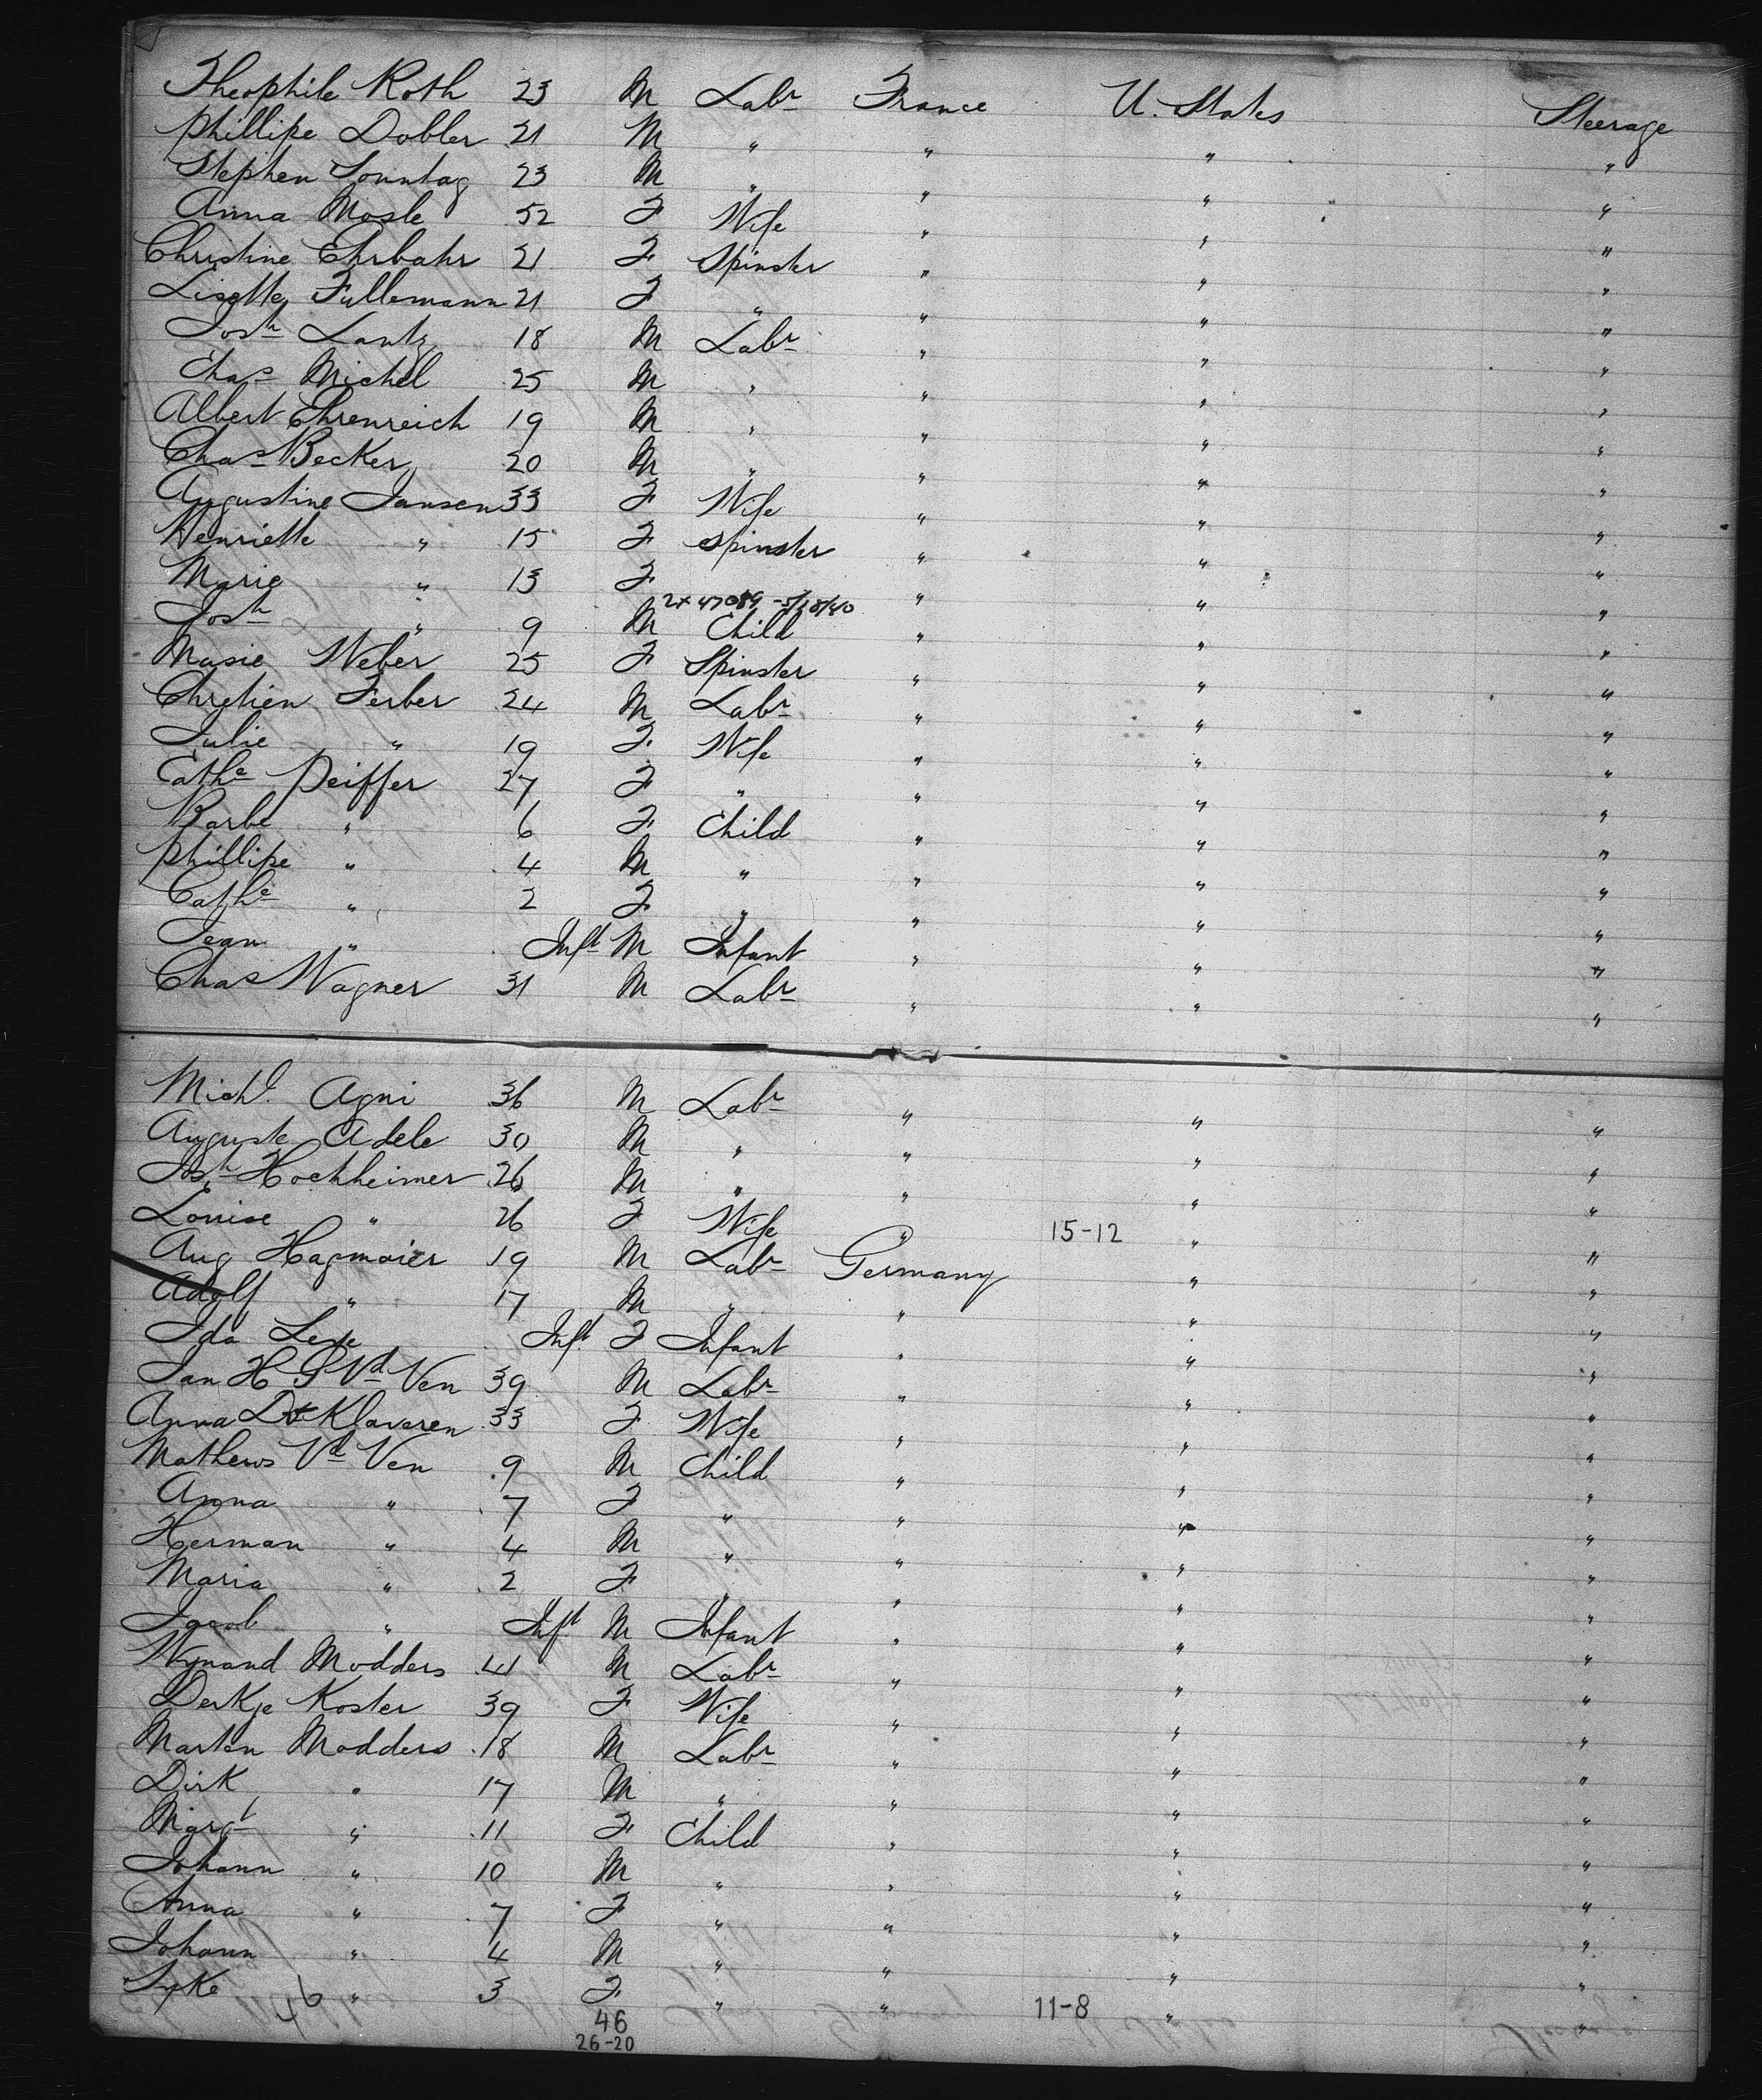 Theophile Roth 23 M Labr France U. States Steerage
Phillipe Dobler 21 M " " " "
Stephen Sonntag 23 M " " " "
Anna Mosle 52 F Wife " " "
Christine Ehrbahr 21 F Spinster " " "
Lisette Fullemann 21 F " " " "
Josh Lantz 18 M Labr " " "
Chas Michel 25 M " " " "
Albert Ehrenreich 19 M " " " "
Chas Becker 20 M " " " "
Augustine Jansen 33 F Wife " " "
Henriette " 15 F Spinster " " "
Marie " 13 F " " "
2x 47089 - 5/28/40
Josh " 9 M Child " " "
Marie Weber 25 F Spinster " " "
Chretien Ferber 24 M Labr " " "
Julie " 19 F Wife " " "
Cathe Peiffer 27 F " " " "
Barbe " 6 F Child " " "
Phillipe " 4 M " " " "
Cathe " 2 F " " " "
Jean " Inft M Infant " " "
Chas Wagner 31 M Labr " " "
Michl Agni 36 M Labr " " "
Auguste Adele 30 M " " " "
Jsh Hochheimer 26 M " " " "
Louise " 26 F Wife " 15-12 " "
Aug Hagmaier 19 M Labr Germany " "
Adolf " 17 M " " " "
Ida Inft F Infant " " "
Jan H Vd Ven 39 M Labr " " "
Anna Klaveren 33 F Wife " " "
Mathews Vd Ven 9 M Child " " "
Anna " 7 F " " " "
Herman " 4 M " " " "
Maria " 2 F " " " "
Jacob " Inft M Infant " " "
Wynand Modders 41 M Labr " " "
Derkje Koster 39 F Wife " " "
Marten Modders 18 M Labr " " "
Dirk " 17 M " " " "
Margt " 11 F Child " " "
Johann " 10 M " " " "
Anna " 7 F " " " "
Johann " 4 M " " " "
Syke " 3 F " " 11-8 " "
46
46
26-20